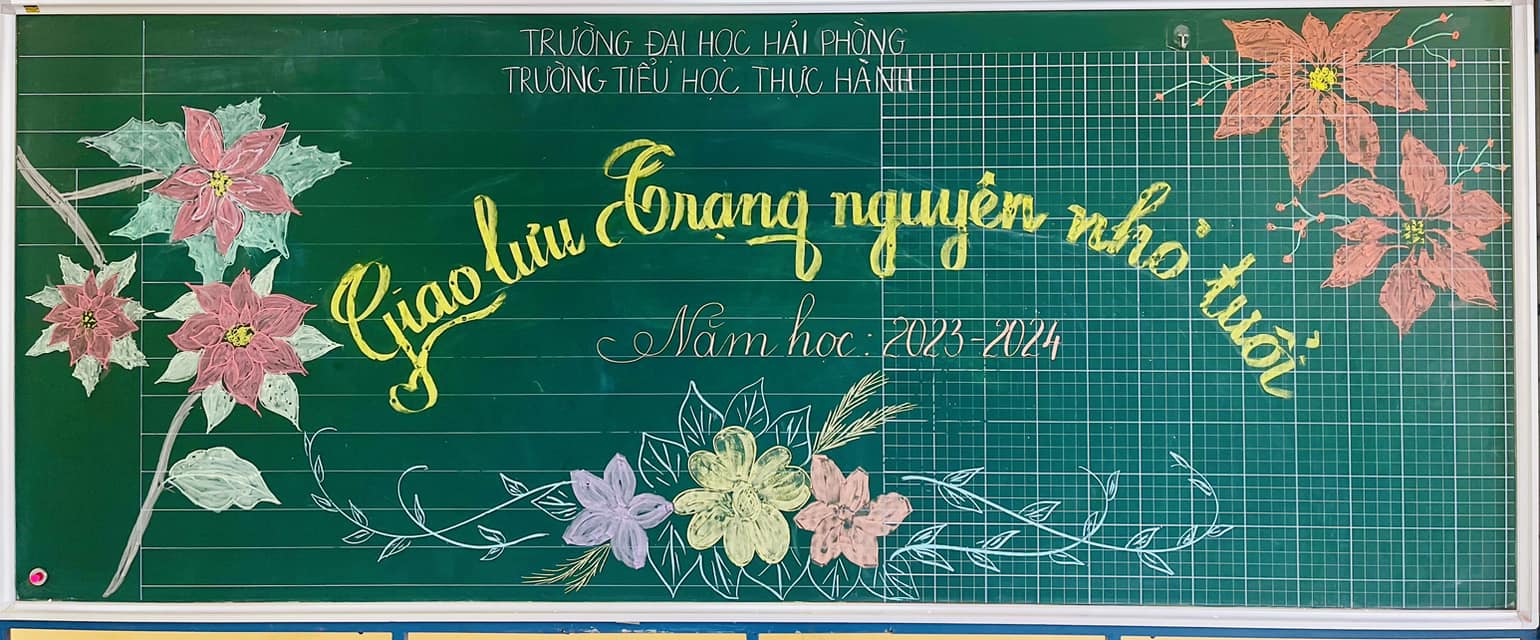 TRƯỜNG ĐẠI HỌC HẢI PHÒNG
TRƯỜNG TIỂU HỌC THỰC HÀNH
Giao lưu Trạng nguyên nhỏ tuổi
Năm học: 2023-2024